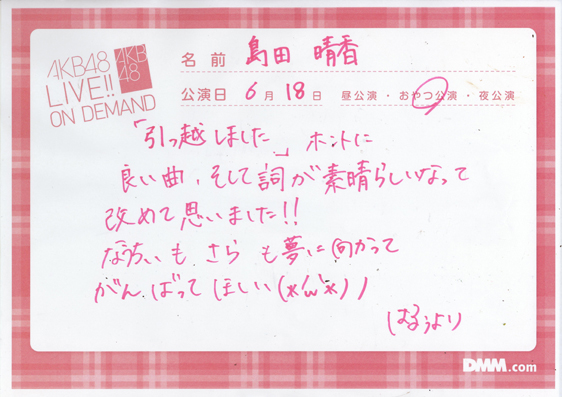 AKB48
LIVE!!
ON DEMAND
AKB
48
名前 島田 晴香
公演日 6月18日 昼公演・おやつ公演・夜公演
「引っ越しました」 ホントに
良い曲、そして詞が素晴らしいなって
改めて思いました!!
なっちぃも さらも夢に向かって
がんばってほしい(*´ω`*))
はるぅより
DMM.com